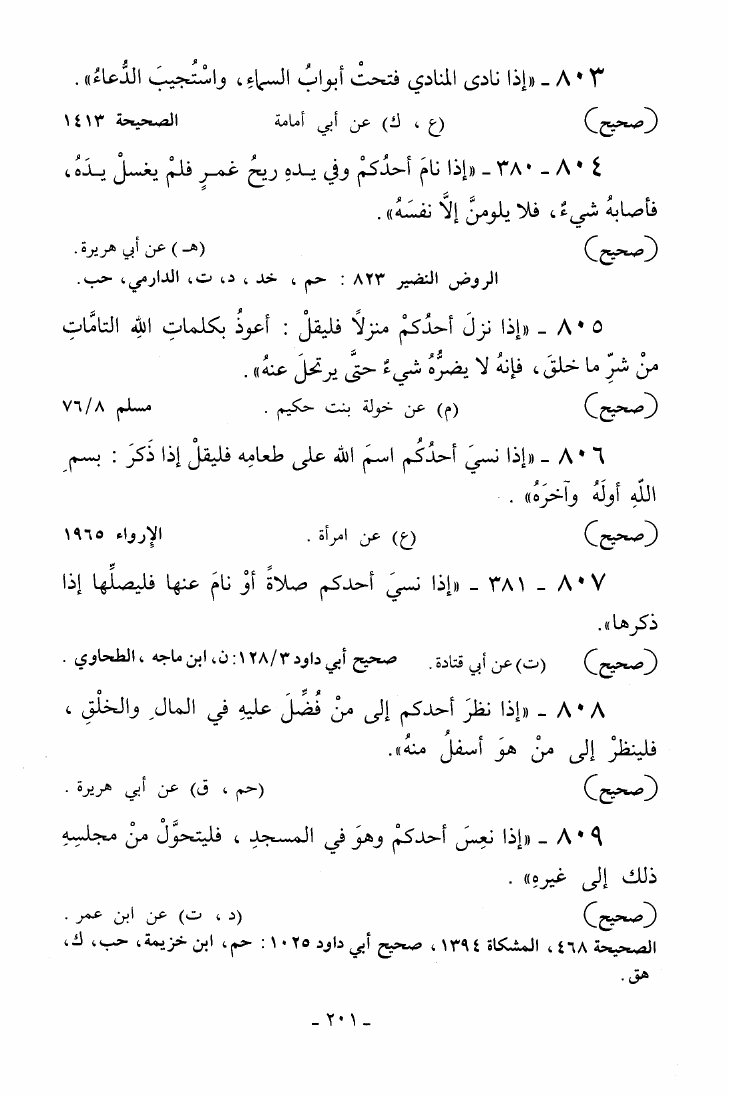 ٨٠٣ - «إذا نادى المنادي فتحتْ أبوابُ السماءِ، واسْتُجيبَ الدُّعاءُ».
(صحيح) (ع ، ك) عن أبي أمامة الصحيحة ١٤١٣
٨٠٤ - ٣٨٠ - «إذا نامَ أحدُكمْ وفي يـدهِ ريحُ غمـرٍ فلمْ يغسلْ يـدَهُ،
فأصابهُ شيءٌ، فلا يلومنَّ إلَّا نفسَهُ».
(صحيح) (هـ) عن أبي هريرة.
الروض النضير ٨٢٣ : حم ، خد ، د، ت، الدارمي، حب.
٨٠٥ - «إذا نزلَ أحدُكمْ منزلاً فليقلْ : أعوذُ بكلماتِ اللهِ التامَّاتِ
منْ شرِّ ما خلقَ، فإنهُ لا يضرُّهُ شيءٌ حتَّى يرتحلَ عنهُ».
(صحيح) (م) عن خولة بنت حكيم . مسلم ٧٦/٨
٨٠٦ - «إذا نسيَ أحدُكُم اسمَ الله على طعامِه فليقلْ إذا ذَكرَ : بسمِ
اللّهِ أولَهُ وآخرَهُ» .
(صحيح) (ع) عن امرأة . الإرواء ١٩٦٥
٨٠٧ - ٣٨١ - «إذا نسيَ أحدكم صلاةً أوْ نامَ عنها فليصلِّها إذا
ذكرها».
(صحيح) (ت) عن أبي قتادة. صحيح أبي داود ١٢٨/٣: ن، ابن ماجه ، الطحاوي .
٨٠٨ - «إذا نظرَ أحدكم إلى منْ فُضِّلَ عليهِ في المالِ والخلْقِ ،
فلينظرْ إلى منْ هوَ أسفلُ منهُ».
(صحيح) (حم ، ق) عن أبي هريرة .
٨٠٩ - «إذا نعِسَ أحدكمْ وهوَ في المسجدِ ، فليتحوَّلْ منْ مجلسِهِ
ذلك إلى غيرهِ» .
(صحيح) (د ، ت) عن ابن عمر .
الصحيحة ٤٦٨، المشكاة ١٣٩٤، صحيح أبي داود ١٠٢٥: حم، ابن خزيمة، حب، ك،
هق.
- ٢٠١ -